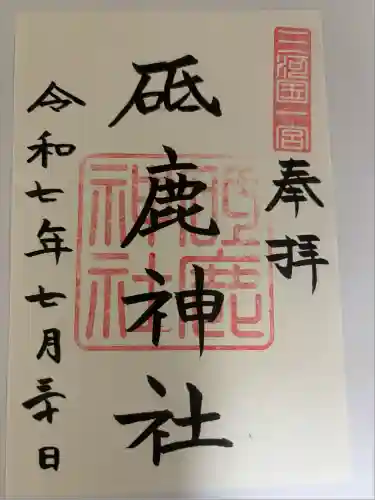 三河國一宮
奉拝
砥鹿神社
砥鹿神社
令和七年七月三十日